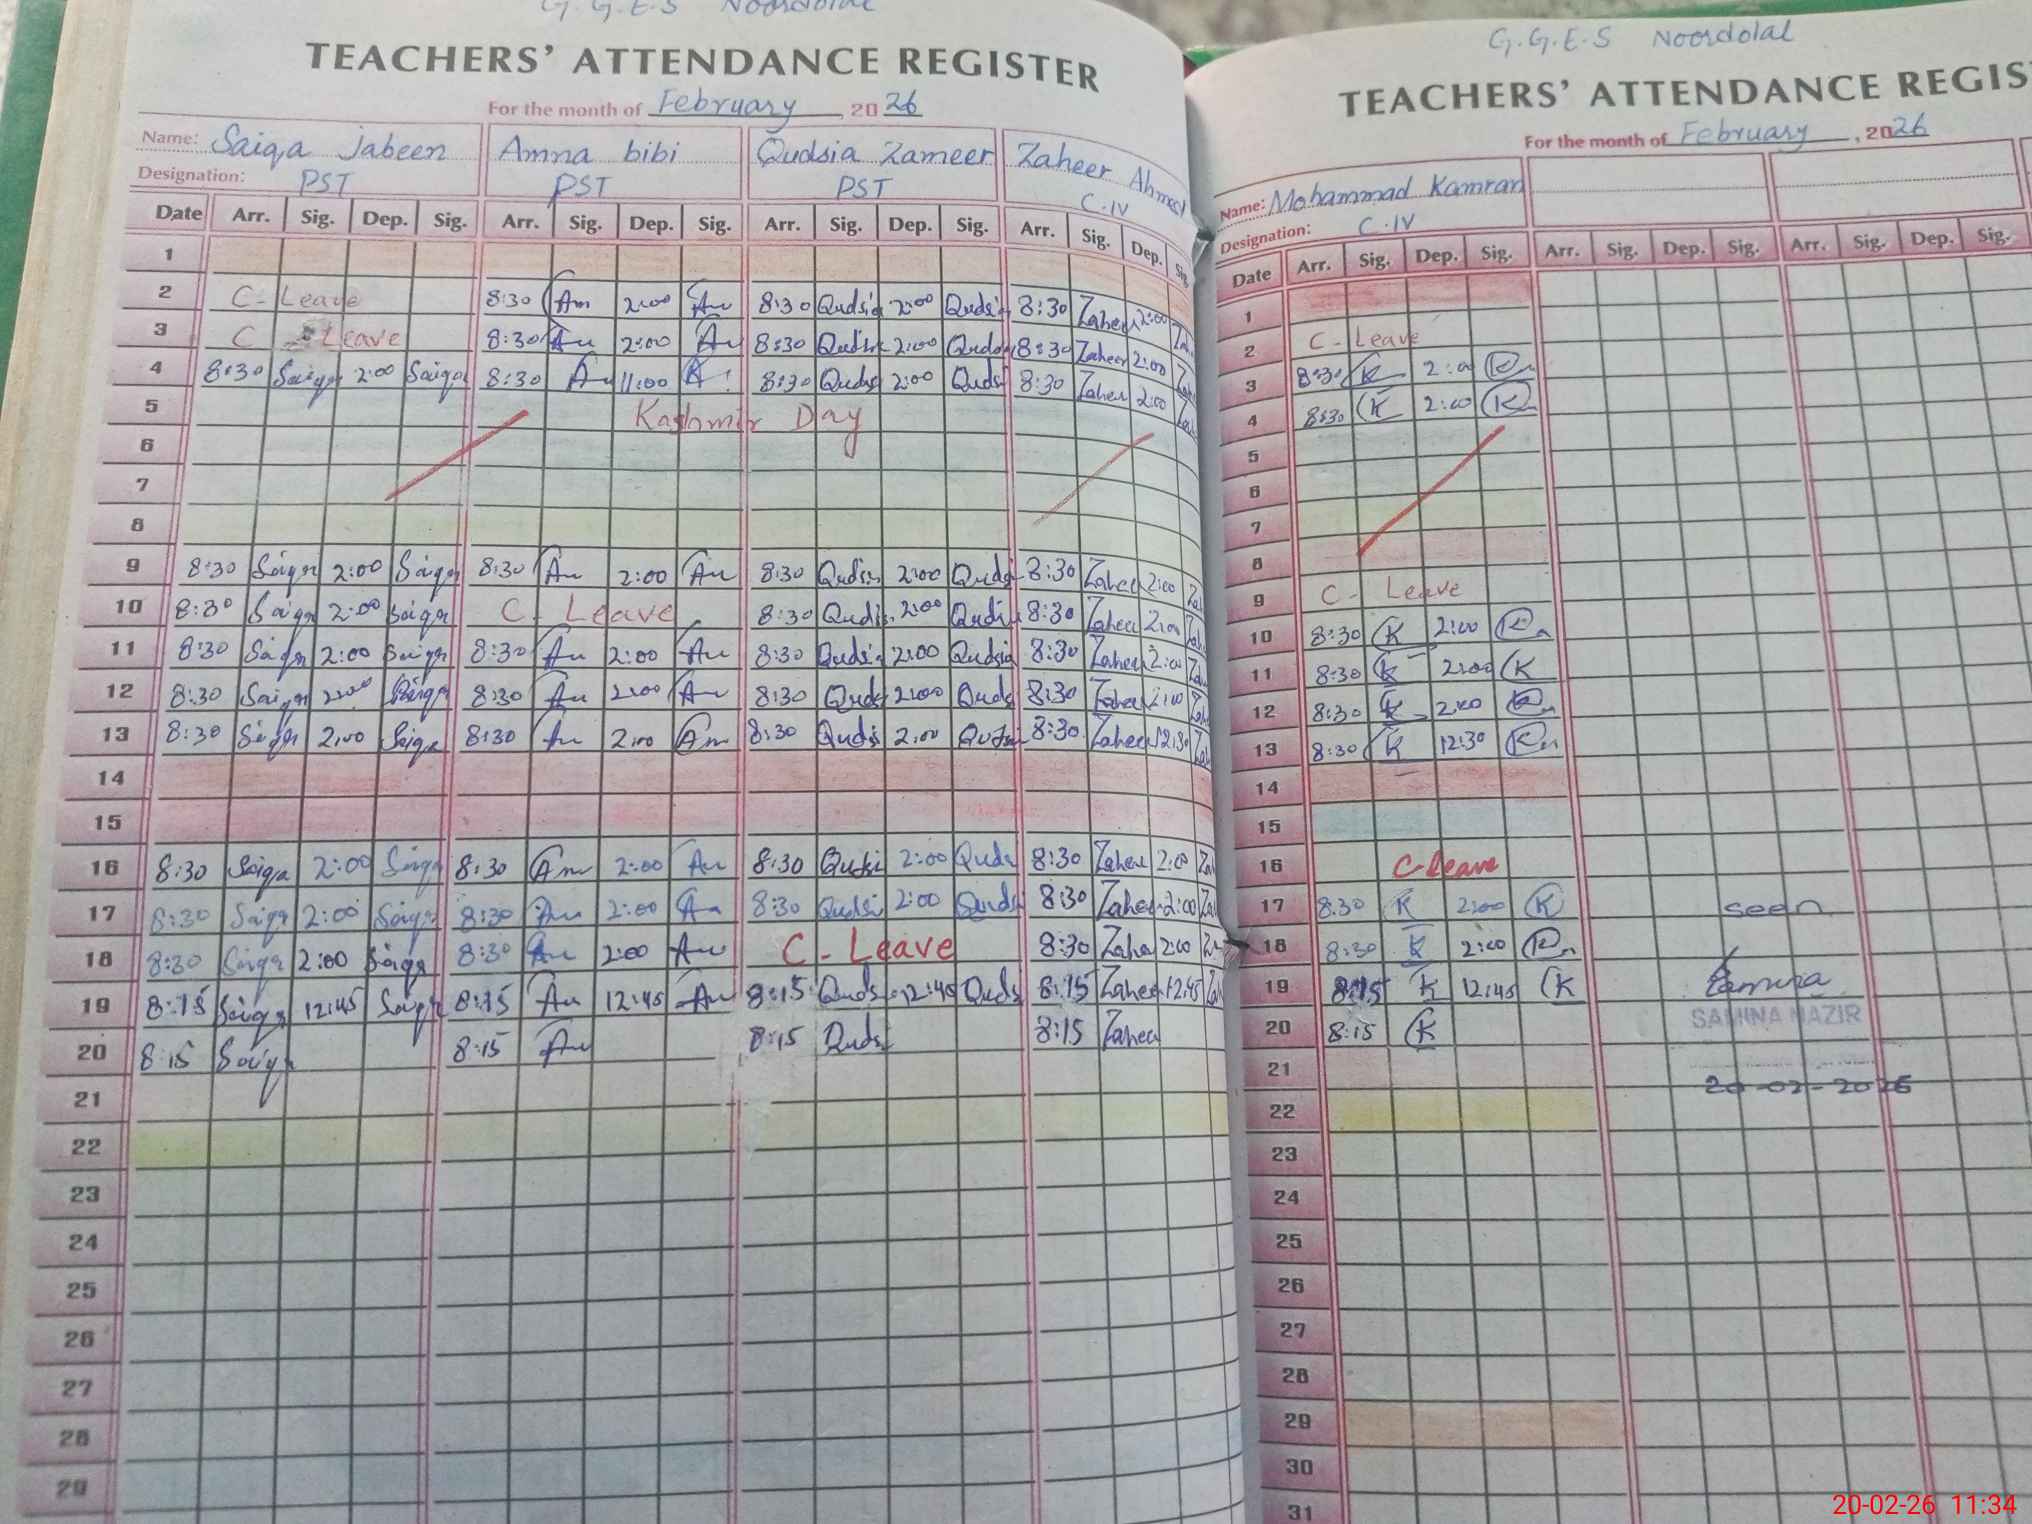 G.G.E.S Noordolal
TEACHERS' ATTENDANCE REGISTER
For the month of February, 2026
Name: Saiqa Jabeen Amna bibi Qudsia Zameer Zaheer Ahmed
Designation: PST PST PST C.IV
Date Arr. Sig. Dep. Sig. Arr. Sig. Dep. Sig. Arr. Sig. Dep. Sig. Arr. Sig. Dep. Sig.
1
2 C-Leave 8:30 Am 2:00 Am 8:30 Qudsia 2:00 Qudsia 8:30 Zaheer 2:00
3 C Leave 8:30 Am 2:00 Am 8:30 Qudsia 2:00 Qudsia 8:30 Zaheer 2:00
4 8:30 Saiqa 2:00 Saiqa 8:30 Am 11:00 A 8:30 Quds 2:00 Quds 8:30 Zaheer 2:00
5 Kashmir Day
6
7
8
9 8:30 Saiqa 2:00 Saiqa 8:30 Am 2:00 Am 8:30 Qudsi 2:00 Quds 8:30 Zaheer 2:00
10 8:30 Saiqa 2:00 Saiqa C-Leave 8:30 Qudsi 2:00 Qudsi 8:30 Zaheer 2:00
11 8:30 Saiqa 2:00 Saiqa 8:30 Am 2:00 Am 8:30 Qudsia 2:00 Qudsia 8:30 Zaheer 2:00
12 8:30 Saiqa 2:00 Saiqa 8:30 Am 2:00 Am 8:30 Quds 2:00 Quds 8:30 Zaheer 2:00
13 8:30 Saiqa 2:00 Saiqa 8:30 Am 2:00 Am 8:30 Qudsi 2:00 Qudsi 8:30 Zaheer 12:30
14
15
16 8:30 Saiqa 2:00 Saiqa 8:30 Am 2:00 Am 8:30 Qudsi 2:00 Quds 8:30 Zaheer 2:00
17 8:30 Saiqa 2:00 Saiqa 8:30 Am 2:00 Am 8:30 Qudsi 2:00 Quds 8:30 Zaheer 2:00
18 8:30 Saiqa 2:00 Saiqa 8:30 Am 2:00 Am C-Leave 8:30 Zahe 2:00
19 8:15 Saiqa 12:45 Saiqa 8:15 Am 12:45 Am 8:15 Quds 12:45 Quds 8:15 Zaheer 12:45
20 8:15 Saiqa 8:15 Am 8:15 Quds 8:15 Zaheer
21
22
23
24
25
26
27
28
29
G.G.E.S Noordolal
TEACHERS' ATTENDANCE REGIS
For the month of February, 2026
Name: Mohammad Kamran
Designation: C.IV
Date Arr. Sig. Dep. Sig. Arr. Sig. Dep. Sig. Arr. Sig. Dep. Sig.
1
2 C-Leave
3 8:30 K 2:00 K
4 8:30 K 2:00 K
5
6
7
8
9 C-Leave
10 8:30 K 2:00 K
11 8:30 K 2:00 K
12 8:30 K 2:00 K
13 8:30 K 12:30 K
14
15
16 C-Leave
17 8:30 K 2:00 K seen
18 8:30 K 2:00 K
19 8:15 K 12:45 K Samina
20 8:15 K SAMINA NAZIR
21 20-02-2026
22
23
24
25
26
27
28
29
30
31
20-02-26 11:34